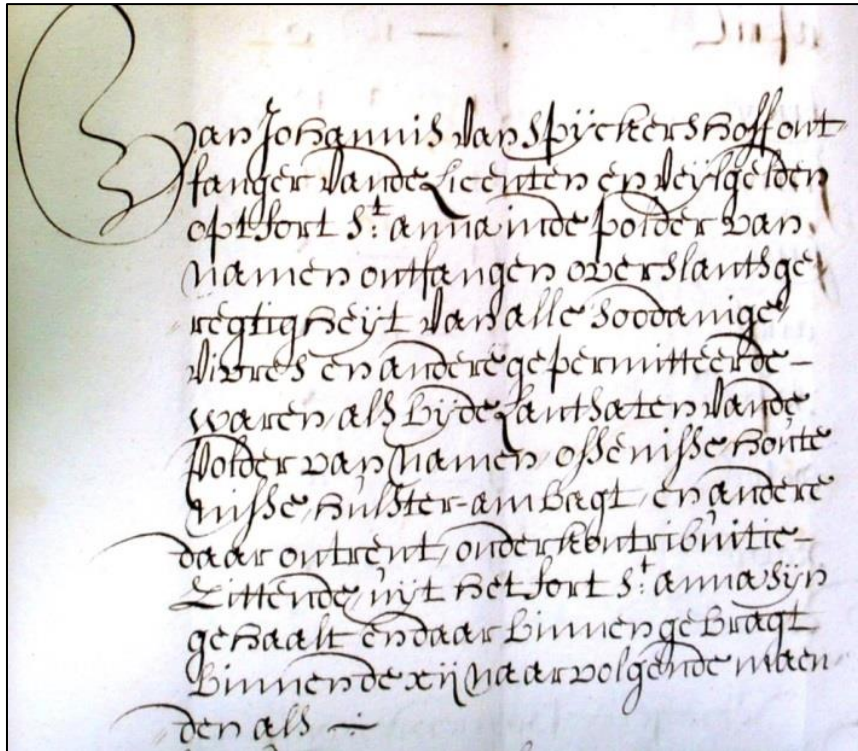 Van Johannis van Spÿckershoff ont
fanger vande Licenten en veÿlgelden
opt fort St: anna inde polder van
namen ontfangen overslants ge
regtigheÿt van alle soodanige
vivres en andere gepermitteerde –
waren, als bÿde Lantsaten vande
Polder van Namen, ossenisse, honte
nisse, hulster-ambagt, en andere
daar ontrent, onder kontributie –
Zittende, uÿt het fort St: anna sÿn
gehaalt en daar binnen gebragt
binnen de xij naarvolgende maen
den als